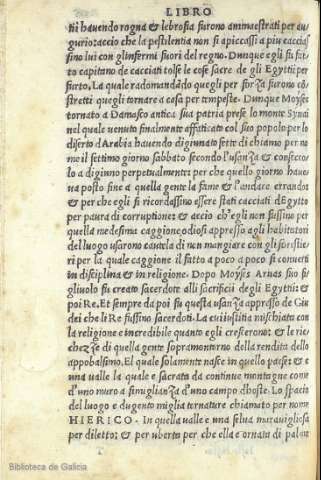 LIBRO
tii havendo rogna & lebrosia furono ammaestrati per au
gurio: accio che la pestilentia non si apiccassi a piu caccias
sino lui con gl'infermi fuori del regno. Dunque egli sti fat
to capitano de cacciati tolse le cose sacre de gli Egyttii per
furto. La quale radomandãdo quegli per forza furono cõ
stretti quegli tornare a casa per tempeste. Dunque Moyses
tornato a Damasco antica sua patria prese lo monte Synai
nel quale venuto finalmente affaticato col suo popolo per lo
diserto d'Arabia havendo digiunato sette di chiamo per no
me il settimo giorno sabbato secondo l'usanza & consecco
lo a digiuno perpetualmente: per che quello giorno havea
va posto fine a quella gente la fame & l'andare errando:
& per che egli si ricordassino essere stati cacciati d'Egytto
per paura di corruptione: & accio ch'egli non fussino per
quella medesima caggione odiosi appresso agli habitatori
del luogo usarono cautela di non mangiare con gli forestie
ri per la quale caggione il fatto a poco a poco si converti
in disciplina & in religione. Dopo Moyses Aruas suo fi
gliuolo fu creato sacerdote alli sacrificii degli Egyttii &
poi Re. Et sempre da poi fu questa usanza appresso de Giu
dei che li Re fussino sacerdoti. La cui iustitia mischiata con
la religione e incredibile quanto egli cresierono: & le ric
chezze di quella gente sopramontorno della rendita dello
appobalsimo. El quale solamente nasce in quello paese & e
una valle la quale e sacrata da continue montagne come
d'uno muro a simiglianza d'uno campo d'hoste. Lo spacio
del luogo e dugento miglia tornature chiamato per nome
HIERICO. In quella valle e una selva maravigliosa
per diletto: & per uberta per che ella e ornata di palme
Biblioteca de Galicia